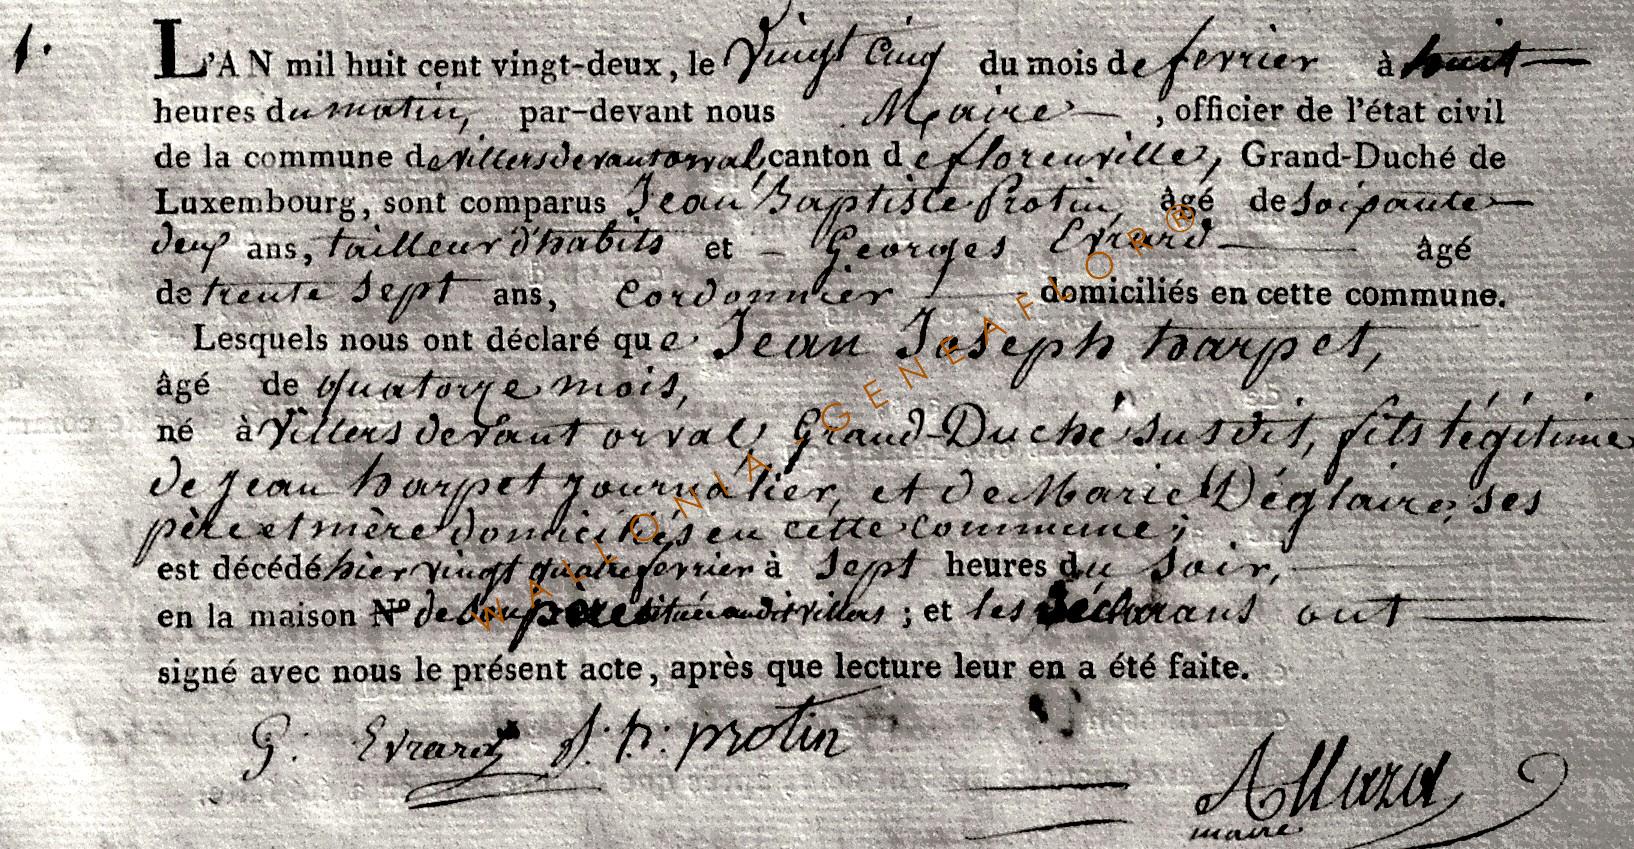 1.
L'AN mil huit cent vingt-deux, le Vingt Cinq du mois de fevrier à huit
heures du matin, par-devant nous Maire, officier de l'état civil
de la commune de villers devant orval, canton de florenville, Grand-Duché de
Luxembourg, sont comparus Jean Baptiste Protin, àgé de soixante
deux ans, tailleur d'habits et Georges Evrard àgé
de trente sept ans, Cordonnier domiciliés en cette commune.
Lesquels nous ont déclaré que Jean Joseph harpet,
âgé de quatorze mois,
né à Villers devant orval, Grand-Duché susdit, fils légitime
de Jean harpet journalier, et de Marie Déglaire, ses
père et mère domiciliés en cette commune;
est décédé hier vingt quatre fevrier à sept heures du soir,
en la maison Nº de son père située audit villers ; et les déclarans ont
signé avec nous le présent acte, après que lecture leur en a été faite.
G. Evrard J. B. protin
maire
WALLONIA GENEAFLOR®